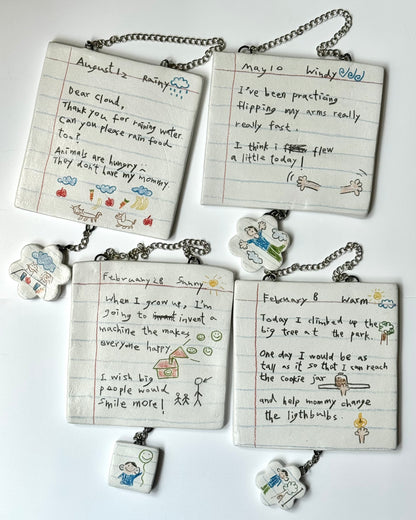 August 12 Rainy
Dear Cloud,
Thank you for raining water.
Can you please rain food
too?
Animals are hungry..
They don't have my mommy.
May 10 Windy
I've been practicing
flipping my arms really
really fast.
I think i flew
a little today!
February 28 Sunny
When I grow up, I'm
going to invent a
machine the makes
everyone happy
I wish big
people would
smile more!
February 8 Warm
Today I climbed up the
big tree at the park.
One day I would be as
tall as it so that I can reach
the cookie jar
and help mommy change
the ligthbulbs.